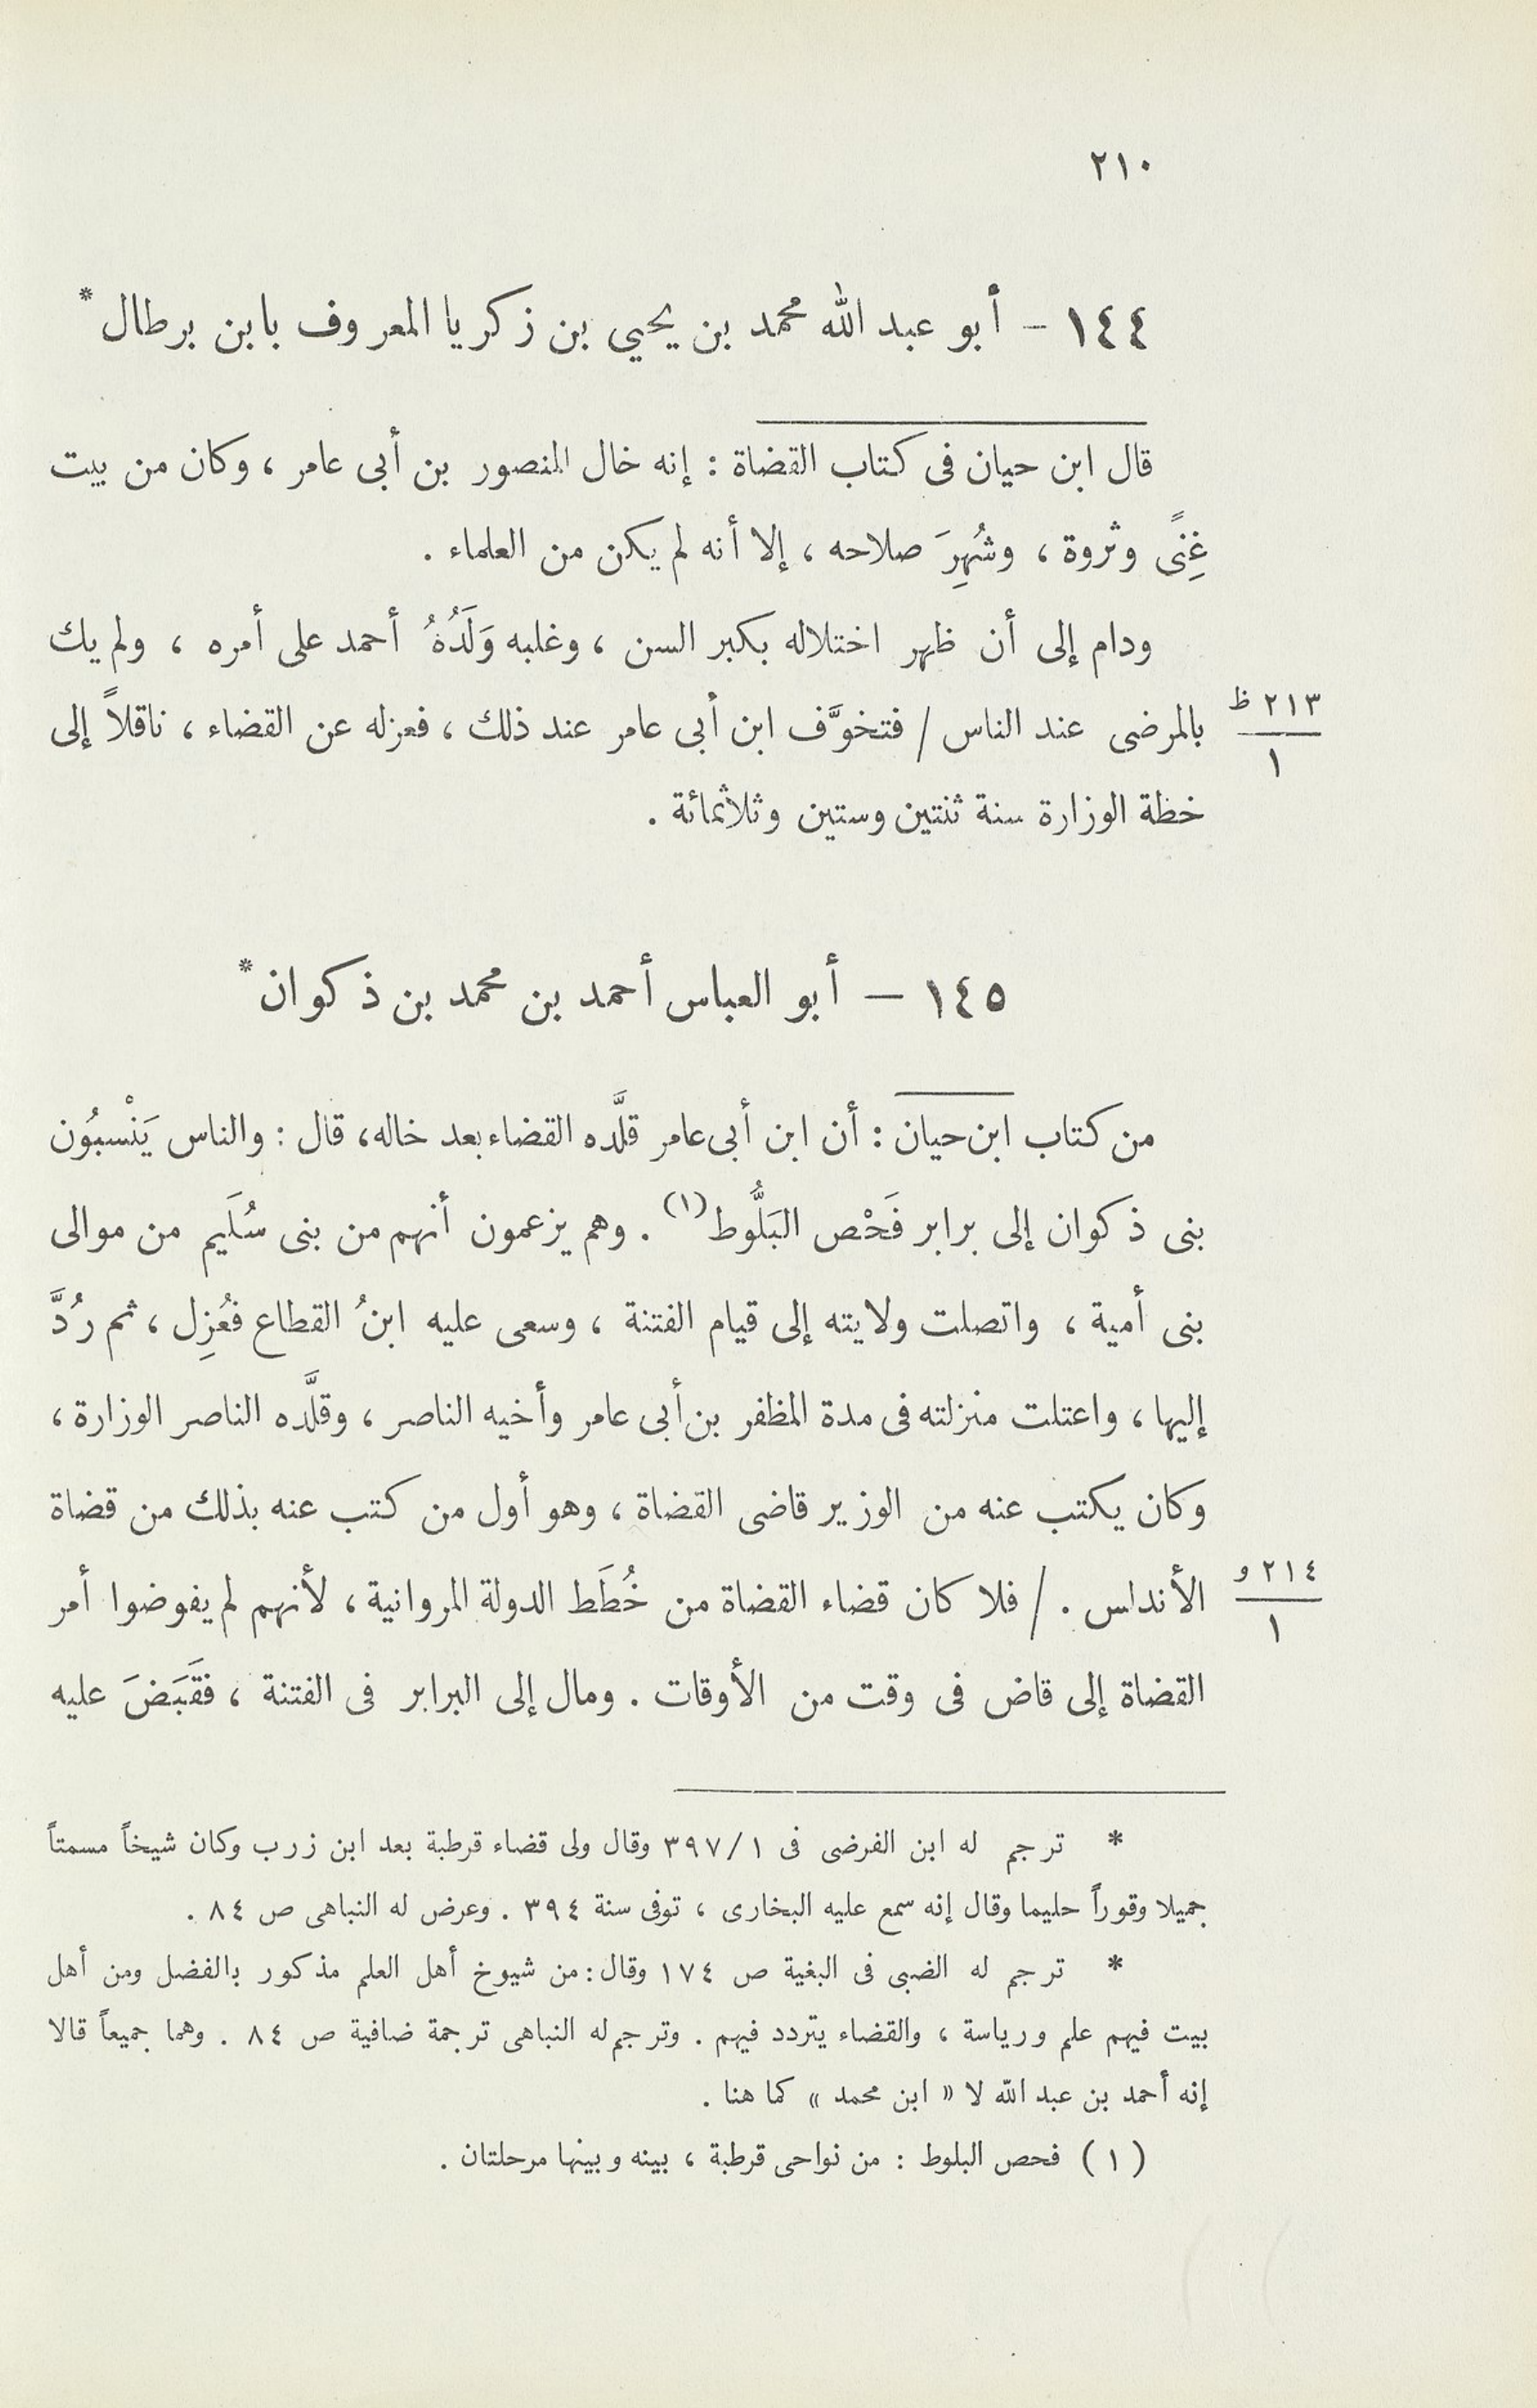 ٢١٠
١٤٤ – أبو عبد الله محمد بن يحيي بن زكريا المعروف بابن برطال *
قال ابن حيان فى كتاب القضاة : إنه خال المنصور بن أبى عامر ، وكان من بيت
غِنًى وثروة ، وشُهِرَ صلاحه ، إلا أنه لم يكن من العلماء .
ودام إلى أن ظهر اختلاله بكبر السن ، وغلبه وَلَدُهُ أحمد على أمره ، ولم يك
بالمرضى عند الناس / فتخوَّف ابن أبى عامر عند ذلك ، فعزله عن القضاء ، ناقلاً إلى
٢١٣ ظ
١
خطة الوزارة سنة ثنتين وستين وثلاثمائة .
١٤٥ – أبو العباس أحمد بن محمد بن ذكوان *
من كتاب ابن حيان : أن ابن أبى عامر قلَّده القضاء بعد خاله، قال : والناس يَنْسبُون
بنى ذكوان إلى برابر فَحْص البَلُّوط (١) . وهم يزعمون أنهم من بنى سُلَيم من موالى
بنى أمية ، واتصلت ولايته إلى قيام الفتنة ، وسعى عليه ابنُ القطاع فعُزِل ، ثم رُدَّ
إليها ، واعتلت منزلته فى مدة المظفر بن أبى عامر وأخيه الناصر ، وقلَّده الناصر الوزارة ،
وكان يكتب عنه من الوزير قاضى القضاة ، وهو أول من كتب عنه بذلك من قضاة
الأندلس . / فلا كان قضاء القضاة من خُطَط الدولة المروانية ، لأنهم لم يفوضوا أمر
٢١٤ و
١
القضاة إلى قاض فى وقت من الأوقات . ومال إلى البرابر فى الفتنة ، فقَبَضَ عليه
* ترجم له ابن الفرضى فى ١/٣٩٧ وقال ولى قضاء قرطبة بعد ابن زرب وكان شيخاً مسمتاً
جميلا وقوراً حليما وقال إنه سمع عليه البخارى ، توفى سنة ٣٩٤ . وعرض له النباهى ص ٨٤ .
* ترجم له الضبى فى البغية ص ١٧٤ وقال : من شيوخ أهل العلم مذكور بالفضل ومن أهل
بيت فيهم علم ورياسة ، والقضاء يتردد فيهم . وترجم له النباهى ترجمة ضافية ص ٨٤ . وهما جميعاً قالا
إنه أحمد بن عبد الله لا « ابن محمد » كما هنا .
(١) فحص البلوط : من نواحى قرطبة ، بينه وبينها مرحلتان .